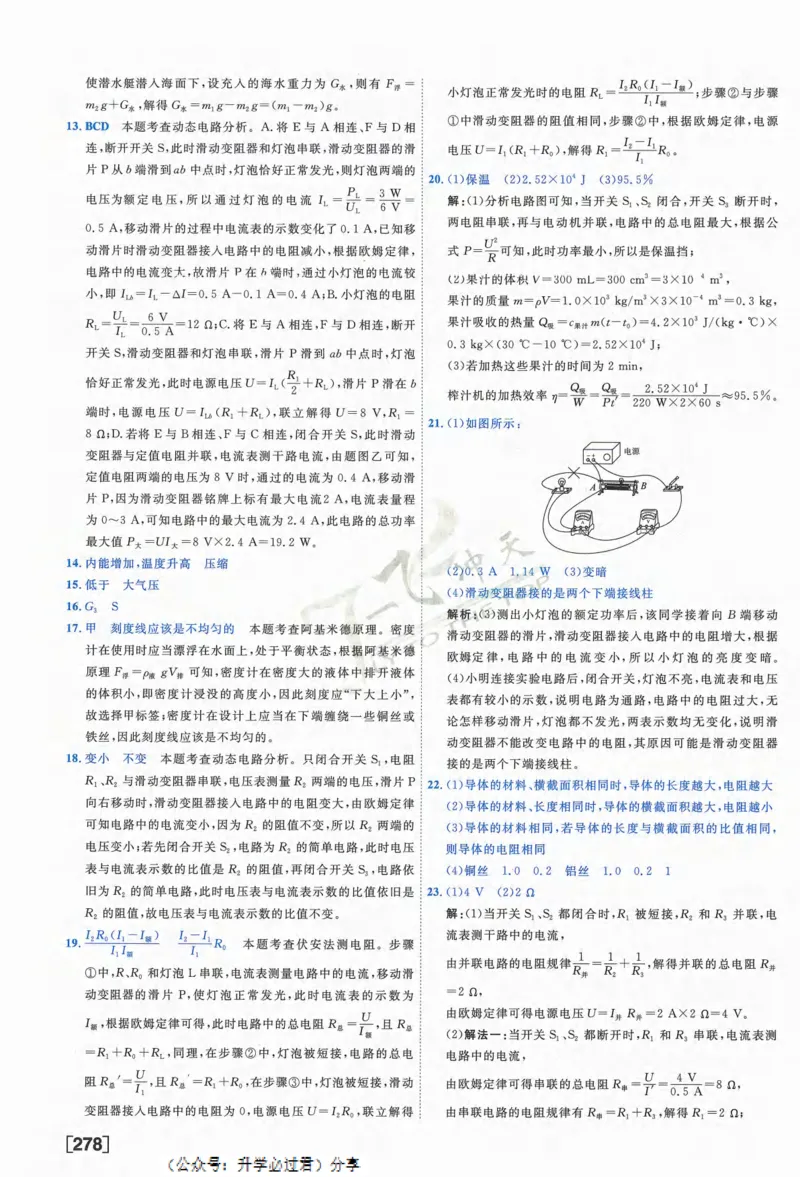 使潜水艇潜入海面下,设充入的海水重力为 G水,则有 F浮=
m₂g+G水,解得 G水=m₁g-m₂g=(m₁-m₂)g。
13.BCD 本题考查动态电路分析。A.将 E 与 A 相连、F 与 D 相
连,断开开关 S,此时滑动变阻器和灯泡串联,滑动变阻器的滑
片 P 从 b 端滑到 ab 中点时,灯泡恰好正常发光,则灯泡两端的
电压为额定电压,所以通过灯泡的电流 I_L=P_L/U_L=3 W/6 V=
0.5 A,移动滑片的过程中电流表的示数变化了 0.1 A,已知移
动滑片时滑动变阻器接入电路中的电阻减小,根据欧姆定律,
电路中的电流变大,故滑片 P 在 b 端时,通过小灯泡的电流较
小,即 I_Lb=I_L-ΔI=0.5 A-0.1 A=0.4 A;B.小灯泡的电阻
R_L=U_L/I_L=6 V/0.5 A=12 Ω;C.将 E 与 A 相连,F 与 D 相连,断开
开关 S,滑动变阻器和灯泡串联,滑片 P 滑到 ab 中点时,灯泡
恰好正常发光,此时电源电压 U=I_L(R₁/2+R_L),滑片 P 滑在 b
端时,电源电压 U=I_Lb(R₁+R_L),联立解得 U=8 V,R₁=
8 Ω;D.若将 E 与 B 相连、F 与 C 相连,闭合开关 S,此时滑动
变阻器与定值电阻并联,电流表测干路电流,由题图乙可知,
定值电阻两端的电压为 8 V 时,通过的电流为 0.4 A,移动滑
片 P,因为滑动变阻器铭牌上标有最大电流2 A,电流表量程
为 0～3 A,可知电路中的最大电流为 2.4 A,此电路的总功率
最大值 P大=UI大=8 V×2.4 A=19.2 W。
14.内能增加,温度升高 压缩
15.低于 大气压
16.G₃ S
17.甲 刻度线应该是不均匀的 本题考查阿基米德原理。密度
计在使用时应当漂浮在水面上,处于平衡状态,根据阿基米德
原理 F浮=ρ液 gV排 可知,密度计在密度大的液体中排开液体
的体积小,即密度计浸没的高度小,因此刻度应“下大上小”,
故选择甲标签;密度计在设计上应当在下端缠绕一些铜丝或
铁丝,因此刻度线应该是不均匀的。
18.变小 不变 本题考查动态电路分析。只闭合开关 S₁,电阻
R₁、R₂ 与滑动变阻器串联,电压表测量 R₂ 两端的电压,滑片 P
向右移动时,滑动变阻器接入电路中的电阻变大,由欧姆定律
可知电路中的电流变小,因为 R₂ 的阻值不变,所以 R₂ 两端的
电压变小;若先闭合开关 S₂,电路为 R₂ 的简单电路,此时电压
表与电流表示数的比值是 R₂ 的阻值,再闭合开关 S₃,电路依
旧为 R₂ 的简单电路,此时电压表与电流表示数的比值依旧是
R₂ 的阻值,故电压表与电流表示数的比值不变。
19.I₂R₀(I₁-I额)/I₁I额 (I₂-I₁)/I₁ R₀ 本题考查伏安法测电阻。步骤
①中,R、R₀ 和灯泡 L 串联,电流表测量电路中的电流,移动滑
动变阻器的滑片 P,使灯泡正常发光,此时电流表的示数为
I额,根据欧姆定律可得,此时电路中的总电阻 R总=U/I额,且 R总
=R₁+R₀+R_L,同理,在步骤②中,灯泡被短接,电路的总电
阻 R总′=U/I₁,且 R总′=R₁+R₀,在步骤③中,灯泡被短接,滑动
变阻器接入电路中的电阻为 0,电源电压 U=I₂R₀,联立解得
[278]
小灯泡正常发光时的电阻 R_L=I₂R₀(I₁-I额)/I₁I额;步骤②与步骤
①中滑动变阻器的阻值相同,步骤②中,根据欧姆定律,电源
电压 U=I₁(R₁+R₀),解得 R₁=(I₂-I₁)/I₁ R₀。
20.(1)保温 (2)2.52×10⁴ J (3)95.5%
解:(1)分析电路图可知,当开关 S₁、S₂ 闭合,开关 S₃ 断开时,
两电阻串联,再与电动机并联,电路中的总电阻最大,根据公
式 P=U²/R可知,此时功率最小,所以是保温挡;
(2)果汁的体积 V=300 mL=300 cm³=3×10⁻⁴ m³,
果汁的质量 m=ρV=1.0×10³ kg/m³×3×10⁻⁴ m³=0.3 kg,
果汁吸收的热量 Q吸=c果汁m(t-t₀)=4.2×10³ J/(kg·℃)×
0.3 kg×(30 ℃-10 ℃)=2.52×10⁴ J;
(3)若加热这些果汁的时间为 2 min,
榨汁机的加热效率 η=Q吸/W=Q吸/Pt′=2.52×10⁴ J/220 W×2×60 s≈95.5%。
21.(1)如图所示:
电源
A B
(2)0.3 A 1.14 W (3)变暗
(4)滑动变阻器接的是两个下端接线柱
解析:(3)测出小灯泡的额定功率后,该同学接着向 B 端移动
滑动变阻器的滑片,滑动变阻器接入电路中的电阻增大,根据
欧姆定律,电路中的电流变小,所以小灯泡的亮度变暗。
(4)小明连接实验电路后,闭合开关,灯泡不亮,电流表和电压
表都有较小的示数,说明电路为通路,电路中的电阻过大,无
论怎样移动滑片,灯泡都不发光,两表示数均无变化,说明滑
动变阻器不能改变电路中的电阻,其原因可能是滑动变阻器
接的是两个下端接线柱。
22.(1)导体的材料、横截面积相同时,导体的长度越大,电阻越大
(2)导体的材料、长度相同时,导体的横截面积越大,电阻越小
(3)导体的材料相同,若导体的长度与横截面积的比值相同,
则导体的电阻相同
(4)铜丝 1.0 0.2 铝丝 1.0 0.2 1
23.(1)4 V (2)2 Ω
解:(1)当开关 S₁、S₂ 都闭合时,R₁ 被短接,R₂ 和 R₃ 并联,电
流表测干路中的电流,
由并联电路的电阻规律1/R并=1/R₂+1/R₃,解得并联的总电阻 R并
=2 Ω,
由欧姆定律可得电源电压 U=I并 R并=2 A×2 Ω=4 V。
(2)解法一:当开关 S₁、S₂ 都断开时,R₁ 和 R₃ 串联,电流表测
电路中的电流,
由欧姆定律可得串联的总电阻 R串=U/I′=4 V/0.5 A=8 Ω,
由串联电路的电阻规律有 R串=R₁+R₃,解得 R₁=2 Ω;
(公众号:升学必过君)分享